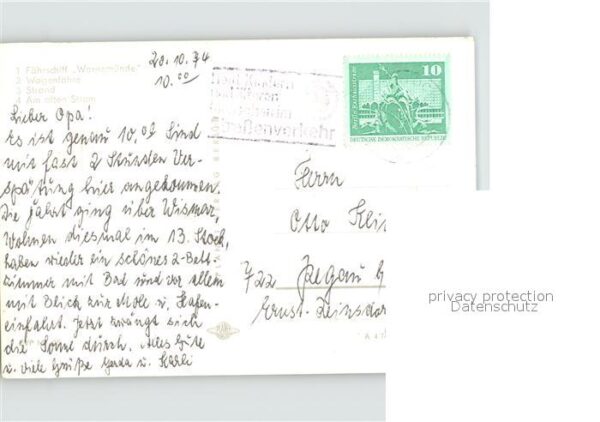 1 Fährschiff „Warnemünde"
2 Wagenfähre
3 Strand
4 Am alten Strom
20.10.74
10.00
Lieber Opa!
Es ist genau 10.00 Sind
mit fast 2 Stunden Ver-
spätung hier angekommen.
Die Fahrt ging über Wismar,
Wohnen diesmal im 13. Stock,
haben wieder ein schönes 2-Bett-
zimmer mit Bad und vor allem
mit Blick zur Mole u. Hafen-
einfahrt. Jetzt zwängt sich
die Sonne durch. Alles Gute
u. viele Grüße Gerda u. Karli
Straßenverkehr
10
DEUTSCHE DEMOKRATISCHE REPUBLIK
Herrn
Otto
722 Pegau
Ernst-
privacy protection
Datenschutz